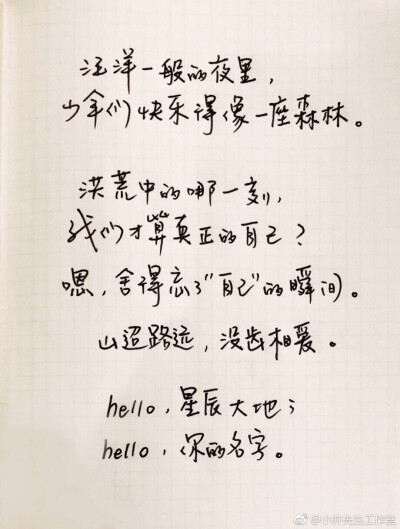 汪洋一般的夜里，
少年们快乐得像一座森林。
洪荒中的哪一刻，
我们才算真正的自己？
嗯，舍得忘了"自己"的瞬间。
山迢路远，没齿相爱。
hello，星辰大地；
hello，你的名字。